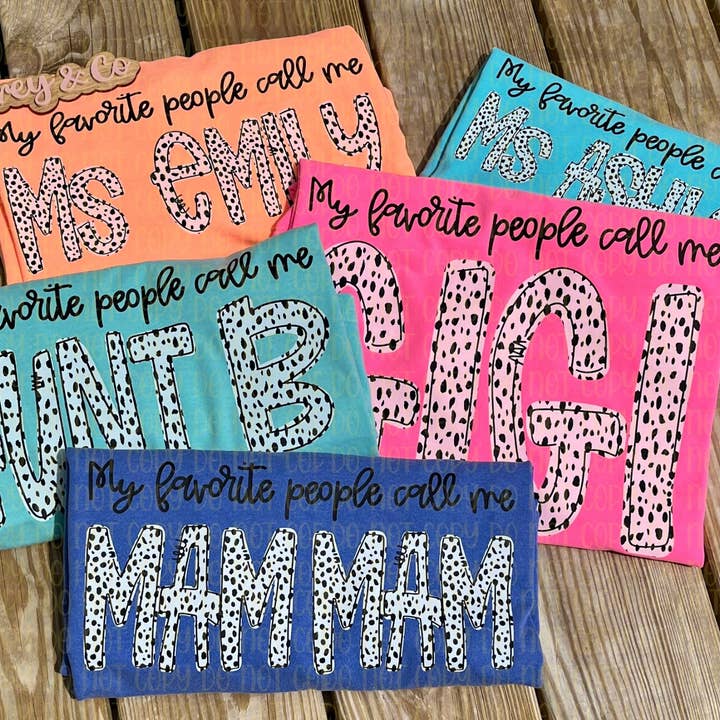 vey & Co
My favorite people call me
Ms EMILY
My favorite people c
Ms ASHL
My favorite people call me
GIGI
avorite people call me
AUNT B
My favorite people call me
MAMMAM
DO NOT COPY